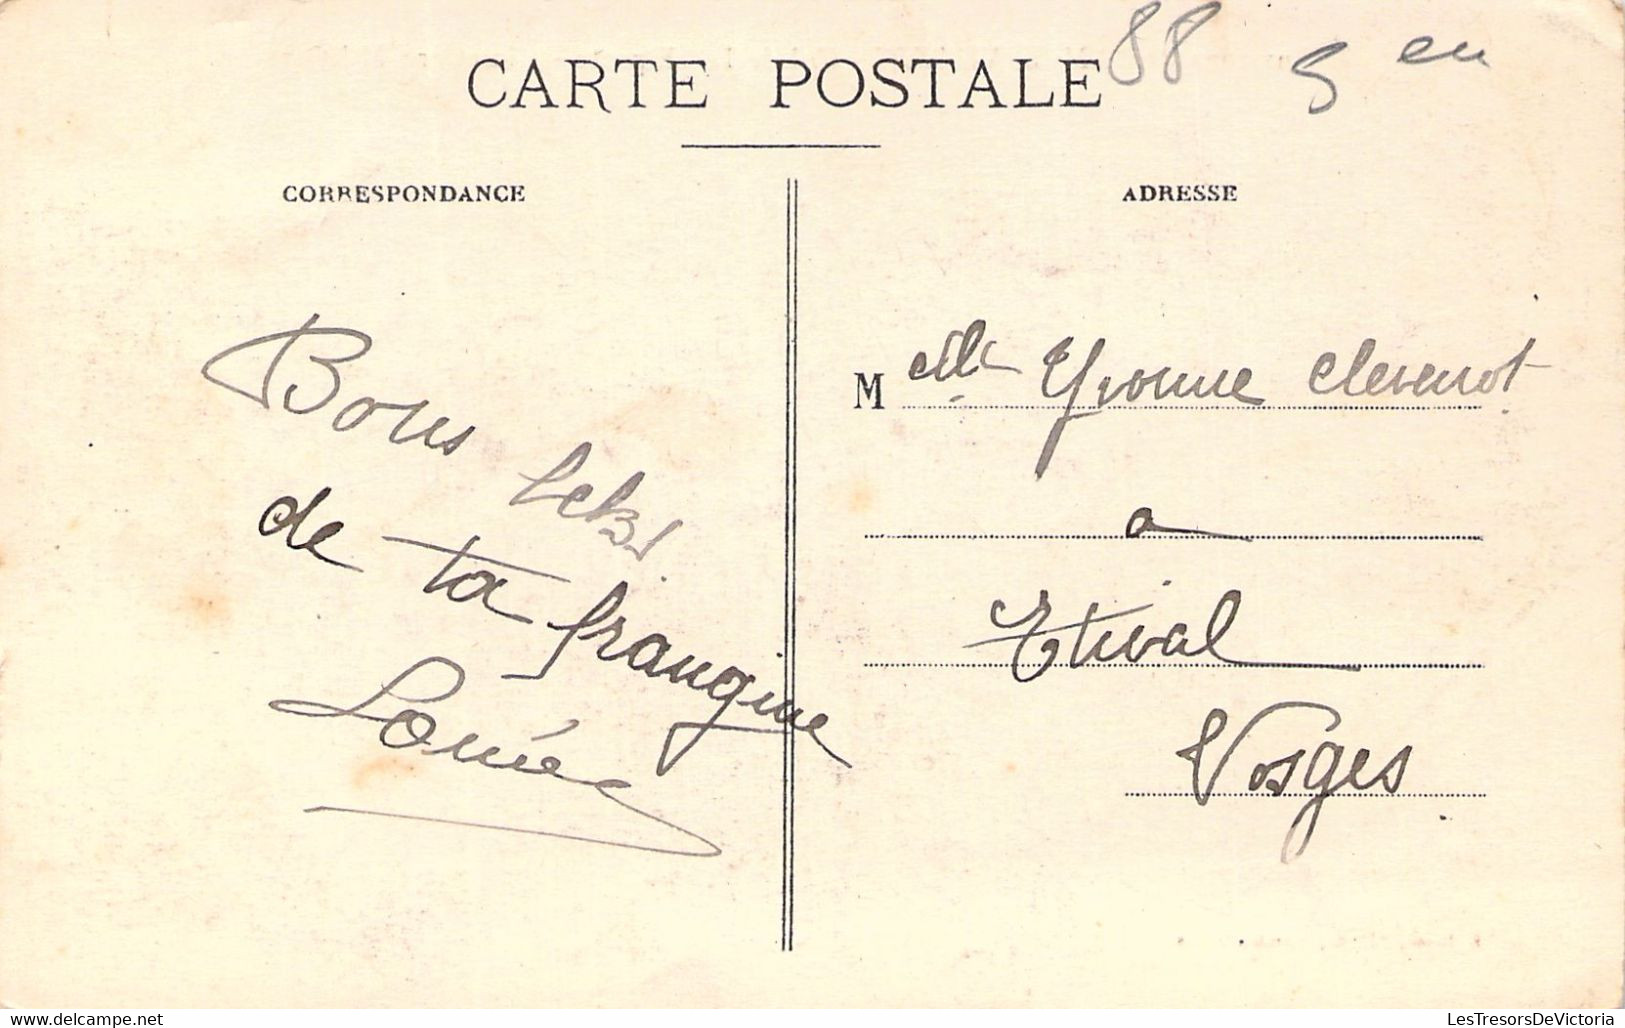 CARTE POSTALE
88
5 eu
CORRESPONDANCE
ADRESSE
Bons
de ta frangine
M elle Yvonne Clevenot
a
Etival
Vosges
www.delcampe.net
LesTresorsDeVictoria